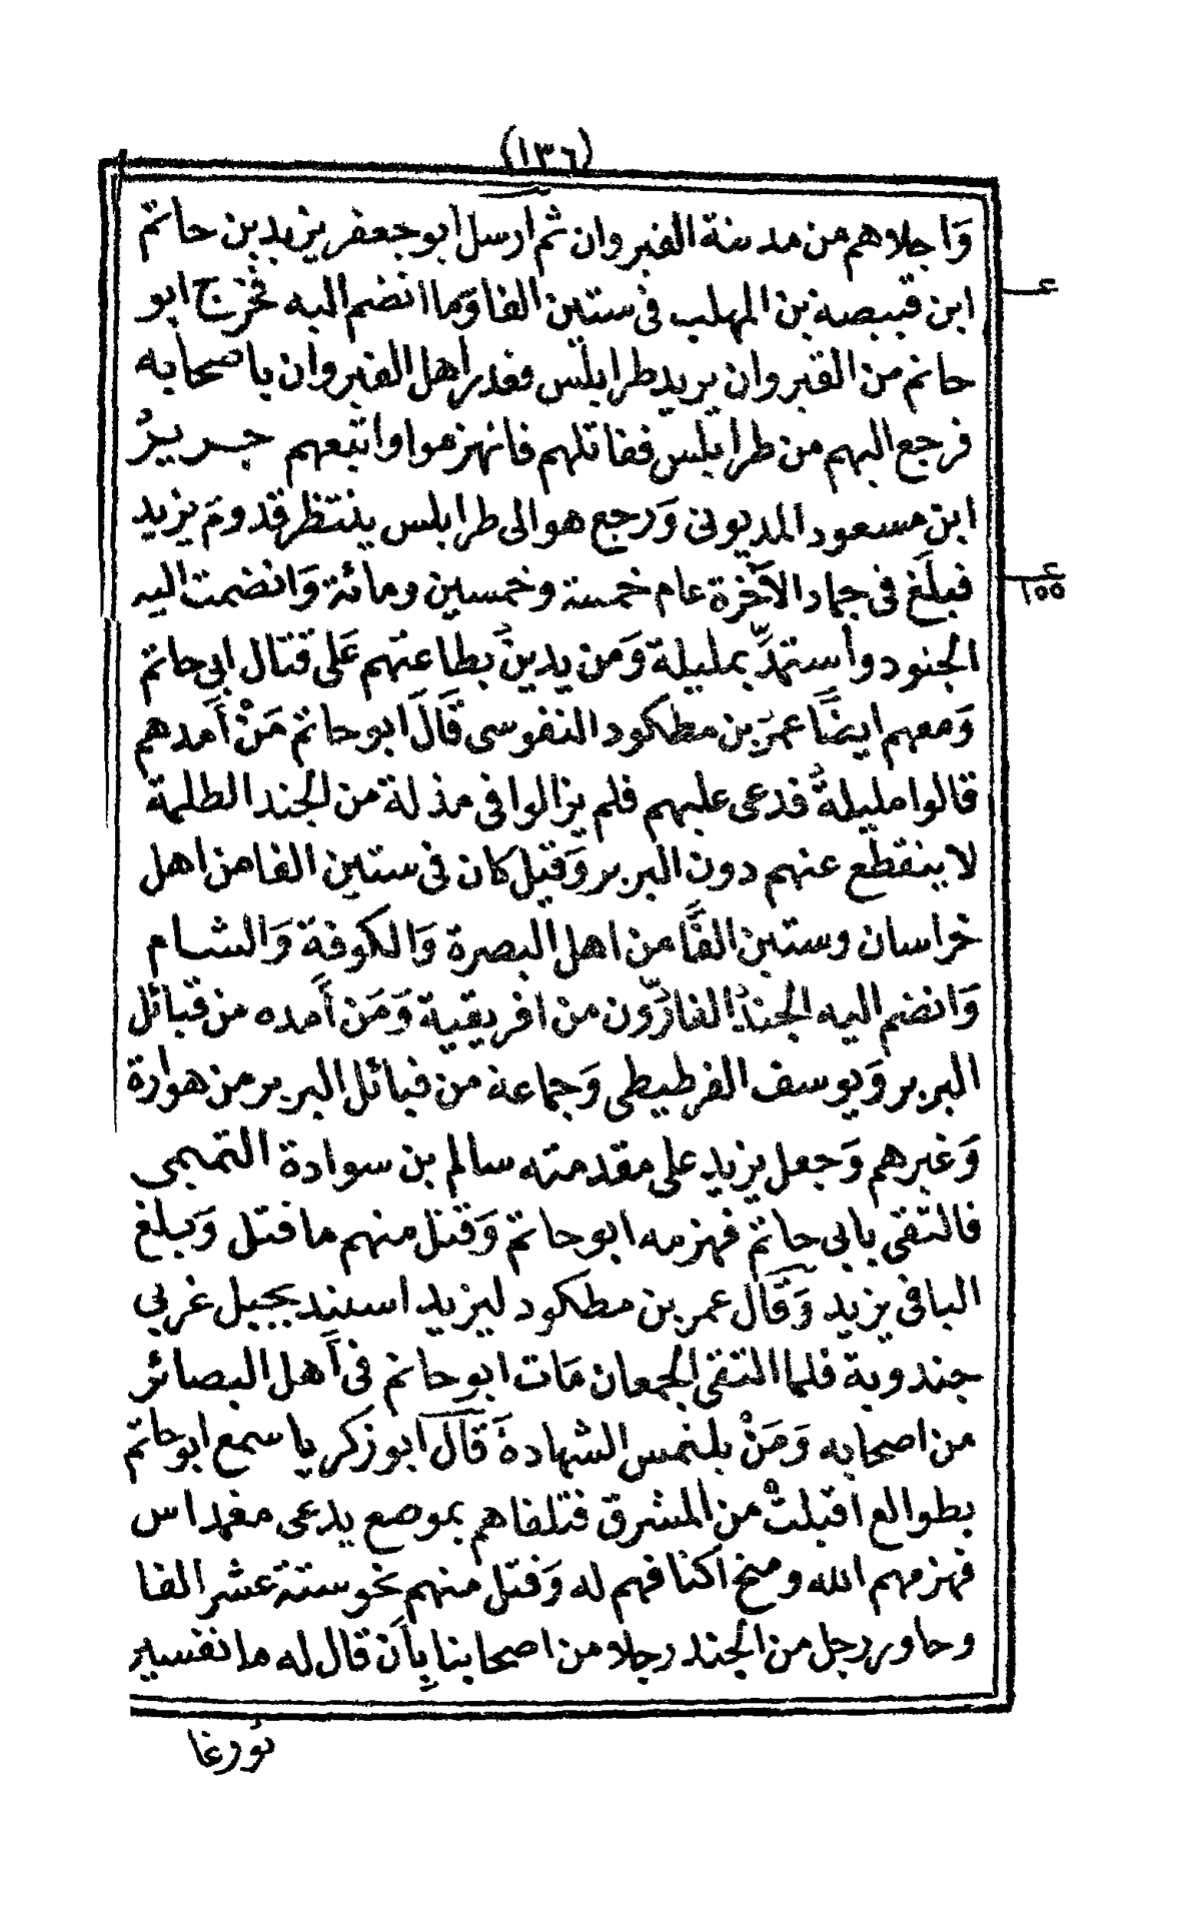 (١٣٦)
وَاجلاهم من مدينة القيروان ثم ارسل ابو جعفر يزيد بن حاتم
ابن قبيصة بن المهلب فى ستين الفا وَما انضم اليه فخرج ابو
حاتم من القيروان يريد طرابلس فغدر اهل القيروان باصحابه
فرجع اليهم من طرابلس فقاتلهم فانهزموا واتبعهم جرير
ابن مسعود المديونى وَرجع هو الى طرابلس ينتظر قدومَ يزيد
فبلَغ فى جماد الآخرة عام خمسة وخمسين ومائة وَانضمت اليه
١٥٥
الجنود وأستمدّ بمليلة وَمن يدينُ بطاعتهم عَلى قتال ابى حاتم
وَمعهم ايضًا عمَر بن مطكود النفوسى قَالَ ابو حاتم مَنْ أَمدهم
قالوا مليلةُ فدعى عليهم فلم يزالوا فى مذلة من الجند الظلمة
لا ينقطع عنهم دون البربر وَقيل كان فى ستين الفا من اهل
خراسان وستين الفًا من اهل البصرة وَالكوفة وَالشام
وَانضم اليه الجندُ الفارّون من افريقية وَمَن أَمده من قبائل
البربر وَيوسف الفرطيطى وَجماعة من قبائل البربر من هوارة
وَغيرهم وَجعل يزيد على مقدمته سالم بن سوادة التميمى
فالتقى بابى حاتم فهزمه ابو حاتم وَقتل منهم ما قتل وَبلغ
الباقى يزيد وَقَال عمر بن مطكود ليزيد استند بجبل غربي
جندوبة فلما التقى الجمعان مَات ابو حاتم فى أَهل البصائر
من اصحابه وَمَنْ يلتمس الشهادة قَالَ ابو زكرياِ سمع ابو حاتم
بطوالع اقبلتْ من المشرق فتلقاهم بموضع يدعى مغمداس
فهزمهم الله ومنح اكتافهم له وَقتل منهم نحو ستة عشر الفا
وحاور رجل من الجند رجلا من اصحابنا بِأَن قال له ما تفسير
تُورغا